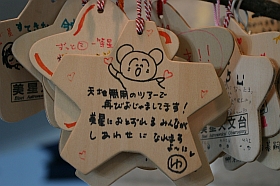 天地開闢のツアーで
再びおじゃましてます!
美星におとずれる みんなが
しあわせに なれます
よーに
ゆ
美星
天文台